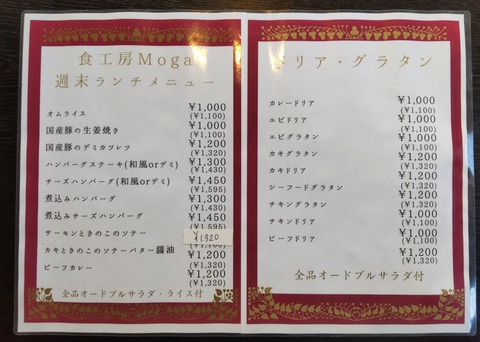 食工房Moga
週末ランチメニュー
オムライス ¥1,000
(¥1,100)
国産豚の生姜焼き ¥1,000
(¥1,100)
国産豚のデミカツレツ ¥1,200
(¥1,320)
ハンバーグステーキ(和風orデミ) ¥1,300
(¥1,430)
チーズハンバーグ(和風orデミ) ¥1,450
(¥1,595)
煮込みハンバーグ ¥1,300
(¥1,430)
煮込みチーズハンバーグ ¥1,450
(¥1,595)
サーモンときのこのソテー
¥1,320
カキときのこのソテーバター醤油 ¥1,200
(¥1,320)
ビーフカレー ¥1,200
(¥1,320)
全品オードブルサラダ・ライス付
ドリア・グラタン
カレードリア ¥1,000
(¥1,100)
エビドリア ¥1,000
(¥1,100)
エビグラタン ¥1,000
(¥1,100)
カキグラタン ¥1,200
(¥1,320)
カキドリア ¥1,200
(¥1,320)
シーフードグラタン ¥1,200
(¥1,320)
チキングラタン ¥1,000
(¥1,100)
チキンドリア ¥1,000
(¥1,100)
ビーフドリア ¥1,200
(¥1,320)
全品オードブルサラダ付